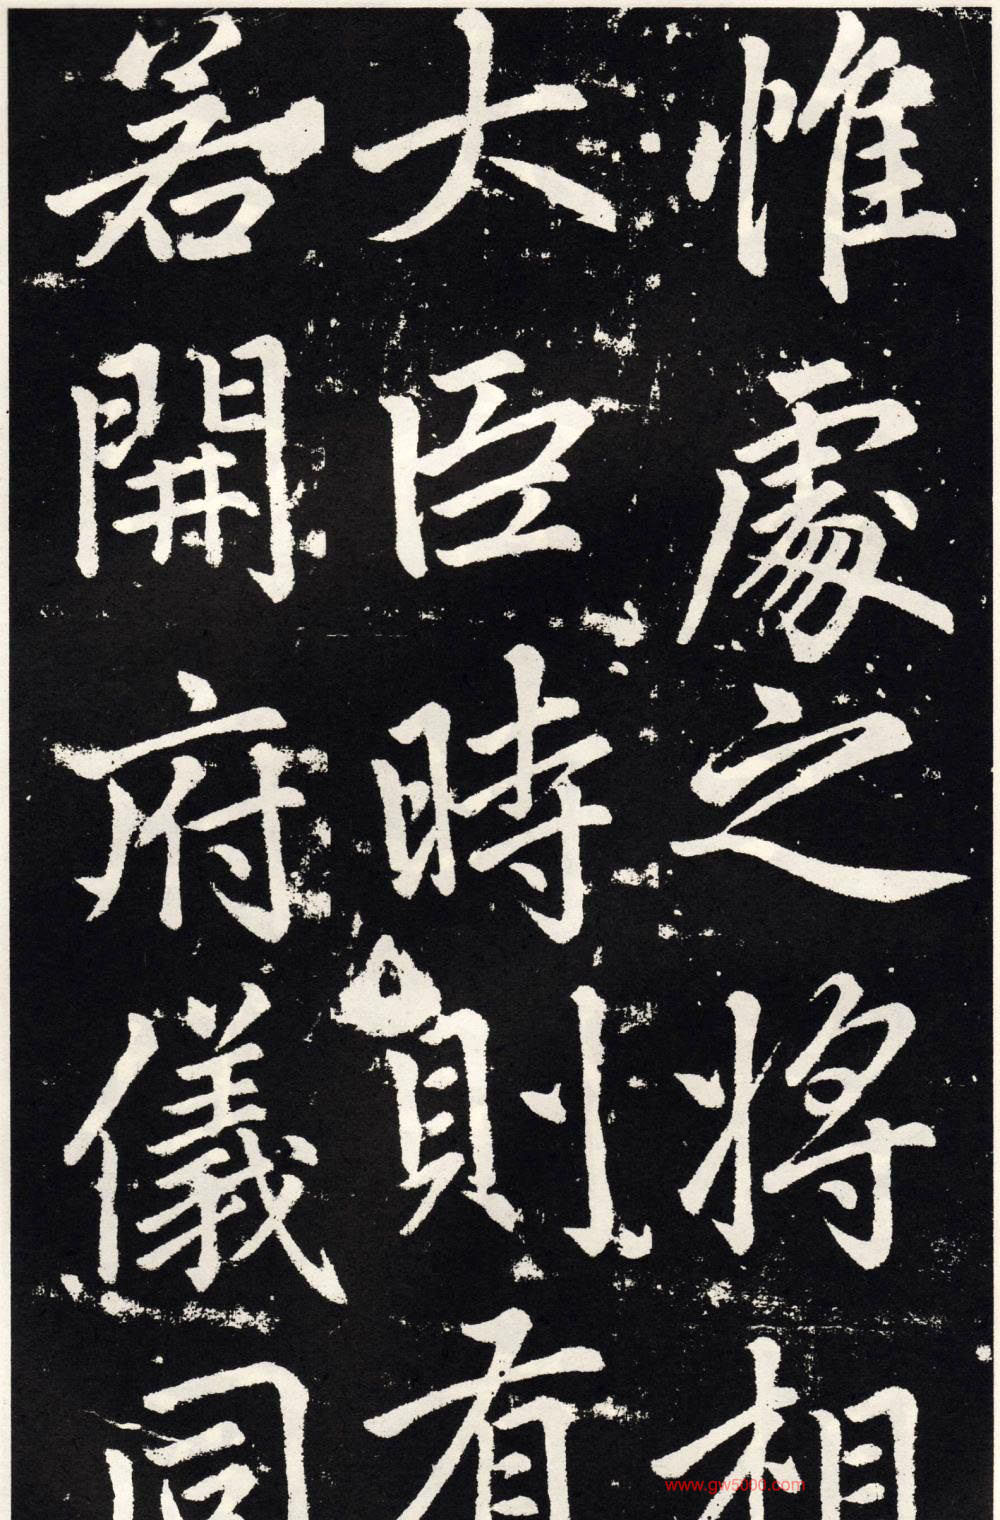 惟處之將相
大臣時則有
若開府儀同
www.gw5000.com